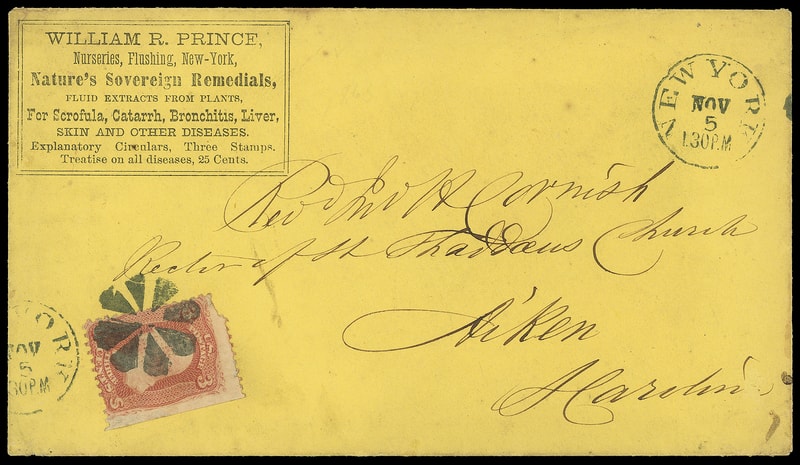 WILLIAM R. PRINCE,
Nurseries, Flushing, New-York,
Nature's Sovereign Remedials,
FLUID EXTRACTS FROM PLANTS,
For Scrofula, Catarrh, Bronchitis, Liver,
SKIN AND OTHER DISEASES.
Explanatory Circulars, Three Stamps.
Treatise on all diseases, 25 Cents.
NEW YORK
NOV
5
1.30 P.M
Revd Jno H Cornish
Rector of St Thaddeus Church
Aiken
S Carolina
YORK
NOV
5
30 P.M
3